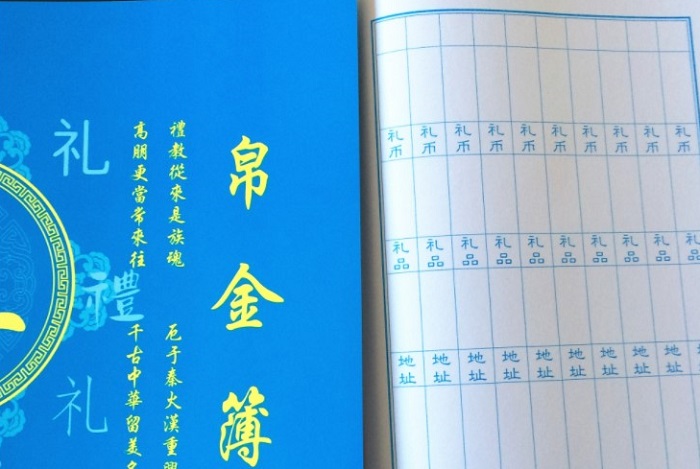 帛金簿
禮教從來是族魂 厄于秦火漢重興
高朋更當常來往 千古中華留美名
礼
禮
礼
礼币 礼币 礼币 礼币 礼币 礼币 礼币 礼币 礼币 礼币
礼品 礼品 礼品 礼品 礼品 礼品 礼品 礼品 礼品 礼品
地址 地址 地址 地址 地址 地址 地址 地址 地址